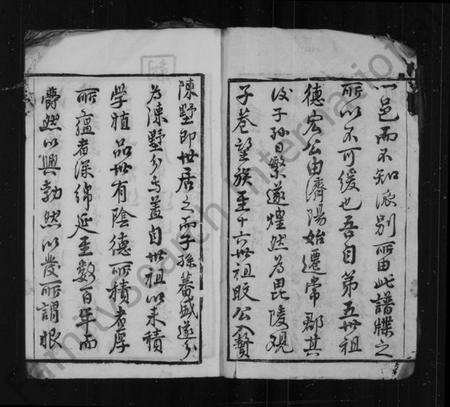 一邑而不知派别所由此譜牒之
所以不可緩也吾自第五世祖
德宏公由濟陽始遷常郡其
後子孫日繁遂煌然為毘陵
子巷望族至十六世祖 公贅
陳墅即世居之而子孫蕃盛遂分
為陳墅分支蓋自世祖以来積
學種品世有陰德所積者厚
所蘊者深綿延至數百年而
欝然以興勃然以發所謂眼